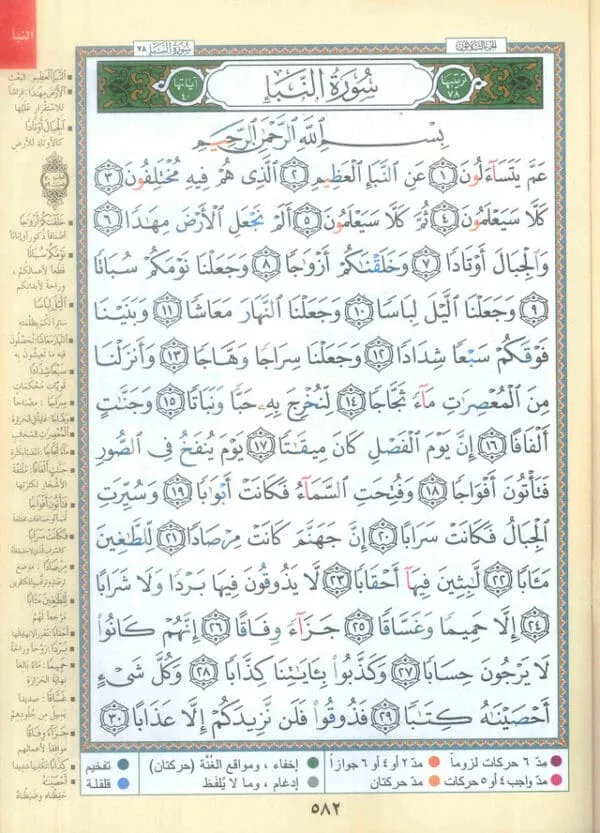 النبأ
الجزء الثلاثون
سورة النبإ ٧٨
ترتيبها ٧٨
سُورَةُ النَّبَإِ
آياتها ٤٠
بِسْمِ اللَّهِ الرَّحْمَٰنِ الرَّحِيمِ
عَمَّ يَتَسَاءَلُونَ ١ عَنِ النَّبَإِ الْعَظِيمِ ٢ الَّذِي هُمْ فِيهِ مُخْتَلِفُونَ ٣
كَلَّا سَيَعْلَمُونَ ٤ ثُمَّ كَلَّا سَيَعْلَمُونَ ٥ أَلَمْ نَجْعَلِ الْأَرْضَ مِهَادًا ٦
وَالْجِبَالَ أَوْتَادًا ٧ وَخَلَقْنَاكُمْ أَزْوَاجًا ٨ وَجَعَلْنَا نَوْمَكُمْ سُبَاتًا
٩ وَجَعَلْنَا اللَّيْلَ لِبَاسًا ١٠ وَجَعَلْنَا النَّهَارَ مَعَاشًا ١١ وَبَنَيْنَا
فَوْقَكُمْ سَبْعًا شِدَادًا ١٢ وَجَعَلْنَا سِرَاجًا وَهَّاجًا ١٣ وَأَنْزَلْنَا
مِنَ الْمُعْصِرَاتِ مَاءً ثَجَّاجًا ١٤ لِنُخْرِجَ بِهِ حَبًّا وَنَبَاتًا ١٥ وَجَنَّاتٍ
أَلْفَافًا ١٦ إِنَّ يَوْمَ الْفَصْلِ كَانَ مِيقَاتًا ١٧ يَوْمَ يُنْفَخُ فِي الصُّورِ
فَتَأْتُونَ أَفْوَاجًا ١٨ وَفُتِحَتِ السَّمَاءُ فَكَانَتْ أَبْوَابًا ١٩ وَسُيِّرَتِ
الْجِبَالُ فَكَانَتْ سَرَابًا ٢٠ إِنَّ جَهَنَّمَ كَانَتْ مِرْصَادًا ٢١ لِلطَّاغِينَ
مَآبًا ٢٢ لَابِثِينَ فِيهَا أَحْقَابًا ٢٣ لَا يَذُوقُونَ فِيهَا بَرْدًا وَلَا شَرَابًا
٢٤ إِلَّا حَمِيمًا وَغَسَّاقًا ٢٥ جَزَاءً وِفَاقًا ٢٦ إِنَّهُمْ كَانُوا
لَا يَرْجُونَ حِسَابًا ٢٧ وَكَذَّبُوا بِآيَاتِنَا كِذَّابًا ٢٨ وَكُلَّ شَيْءٍ
أَحْصَيْنَاهُ كِتَابًا ٢٩ فَذُوقُوا فَلَنْ نَزِيدَكُمْ إِلَّا عَذَابًا ٣٠
النَّبَإِ الْعَظِيمِ : البعث
الْأَرْضَ مِهَادًا : فراشاً
للاستقرار عليها
الْجِبَالَ أَوْتَادًا
كالأوتاد للأرض
خَلَقْنَاكُمْ أَزْوَاجًا
أصنافاً ذكوراً وإناثاً
نَوْمَكُمْ سُبَاتًا
قطعاً لأعمالكم ،
وراحة لأبدانكم
اللَّيْلَ لِبَاسًا
ساتراً لكم بظلمته
النَّهَارَ مَعَاشًا : تحصلون
فيه ما تعيشون به
سَبْعًا شِدَادًا
قويات محكمات
سِرَاجًا : مصباحاً
مِرْصَادًا : موضع
لِلطَّاغِينَ مَآبًا
مرجعاً لهم
حَمِيمًا : ماء بالغاً
نهاية الحرارة
غَسَّاقًا : صديداً
يسيل من جلودهم
جَزَاءً وِفَاقًا
موافقاً لأعمالهم
أَحْصَيْنَاهُ
حفظناه وضبطناه
مدّ ٦ حركات لزوماً مدّ ٢ أو ٤ أو ٦ جوازاً إخفاء ، ومواقع الغُنَّة (حركتان) تفخيم
مدّ واجب ٤ أو ٥ حركات مدّ حركتان إدغام ، وما لا يُلفَظ قلقلة
٥٨٢